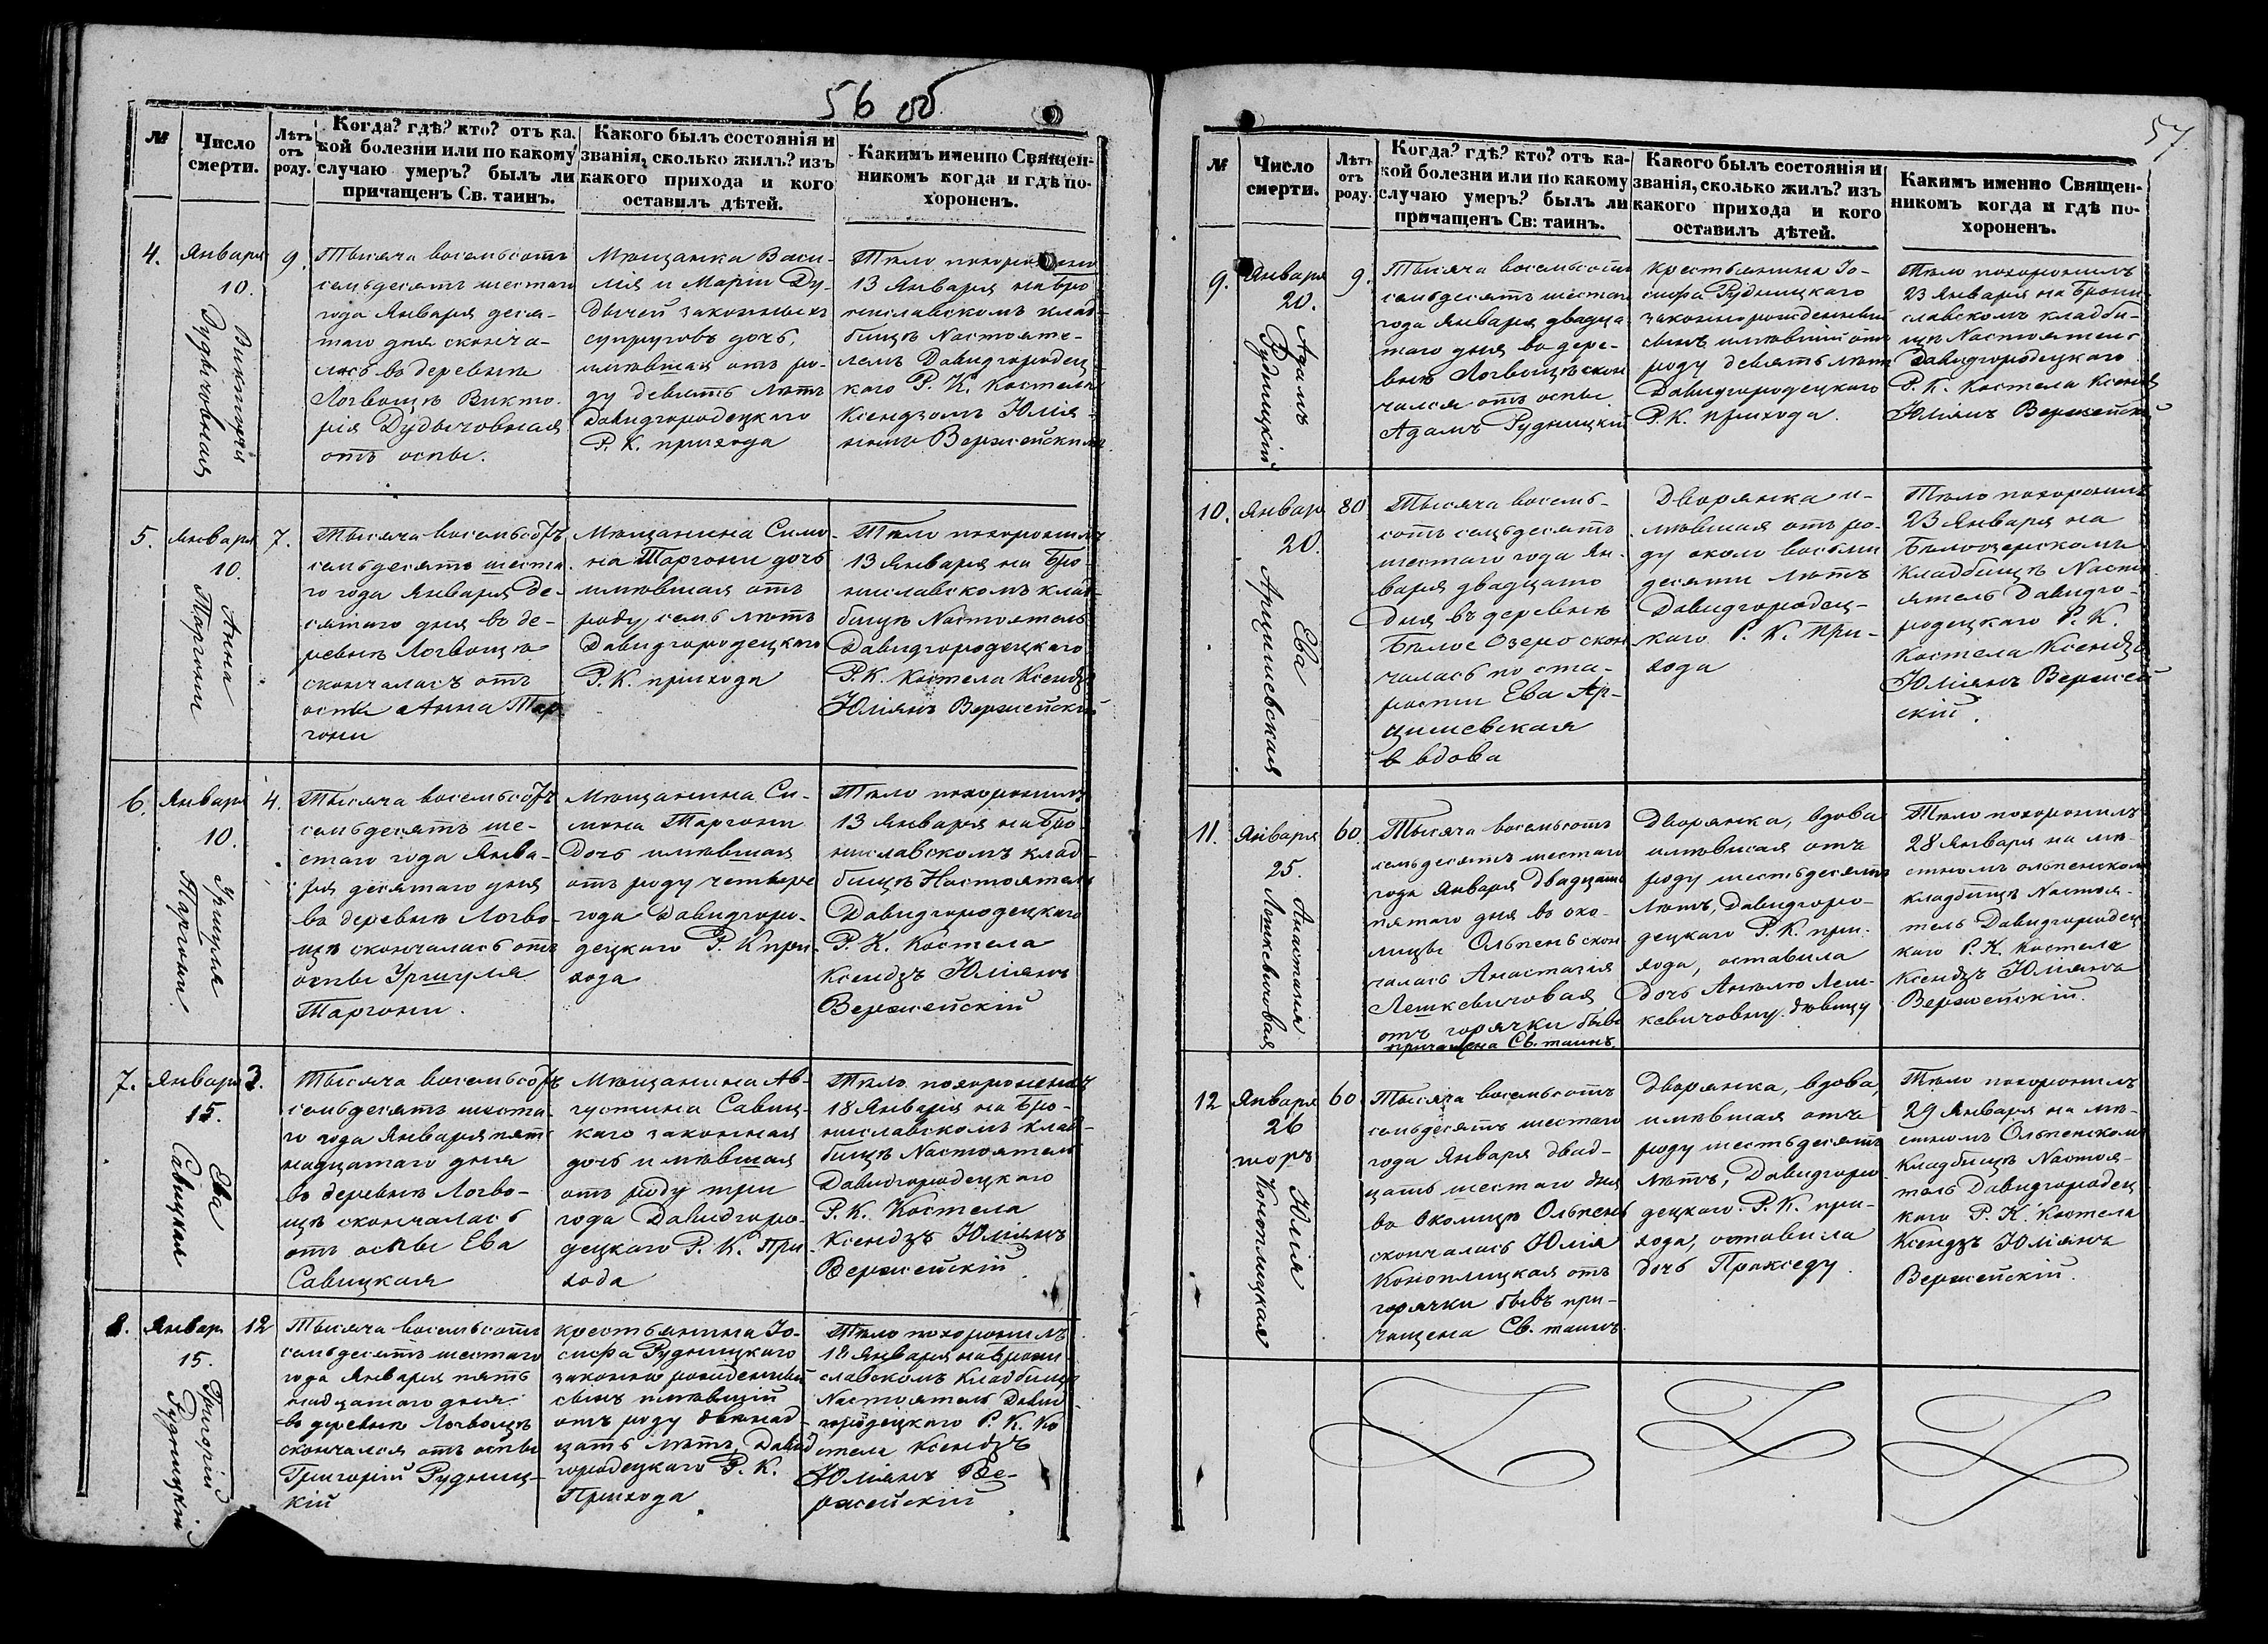 56 об
№
Число
смерти.
Лѣтъ
отъ
роду.
Когда? гдѣ? кто? отъ ка-
кой болезни или по какому
случаю умеръ? былъ ли
причащенъ Св. таинъ.
Какого былъ состоянія и
званія, сколько жилъ? изъ
какого прихода и кого
оставилъ дѣтей.
Какимъ именно Священ-
никомъ когда и гдѣ по-
хороненъ.
4.
Января
10.
Виктория
Дудичовная
9.
Тысяча восемьсотъ
семьдесятъ шестаго
года Января деся-
таго дня сконча-
лась въ деревнѣ
Логвощѣ Викто-
рія Дудычовная
отъ оспы.
Мѣщанка Васи-
лія и Маріи Ду-
дычей законныхъ
супруговъ дочь,
имѣвшая отъ ро-
ду девять лѣтъ
Давидгородецкаго
Р. К. прихода
Тѣло похоронено
13 Января на Бро
ниславскомъ клад-
бищѣ Настояте-
лемъ Давидгородец
каго Р. К. Костела
Ксендзомъ Юлія-
номъ Вержейскимъ
5.
Января
10.
Анна
Таргони
7.
Тысяча восемьсотъ
семьдесятъ шеста
го года Января Де-
сятаго дня въ де-
ревнѣ Логвощѣ
скончалась отъ
оспы Анна Тар
гони
Мѣщанина Симо-
на Таргони дочь
имѣвшая отъ
роду семь лѣтъ
Давидгородецкаго
Р. К. прихода
Тѣло похоронилъ
13 Января на Бро-
ниславскомъ клад-
бищѣ Настоятель
Давидгородецкаго
Р. К. Костела Ксендзъ
Юліянъ Вержейскій
6.
Января
10.
Уршуля
Таргони.
4.
Тысяча восемьсотъ
семьдесятъ ше-
стаго года Янва-
ря десятаго дня
въ деревнѣ Логво-
щѣ скончалась отъ
оспы Уршуля
Таргони.
Мѣщанина Си-
мона Таргони
Дочь имѣвшая
отъ роду четыре
года Давидгоро-
децкаго Р. К при-
хода
Тѣло похоронилъ
13 Января на Бро-
ниславскомъ клад-
бищѣ Настоятель
Давидгородецкаго
Р. К. Костела
Ксендзъ Юліянъ
Вержейскій
7.
Января
15.
Ева
Савицкая
3.
Тысяча восемьсотъ
семьдесятъ шеста-
го года Января пят-
надцатаго дня
въ деревнѣ Логво-
щѣ скончалась
отъ оспы Ева
Савицкая
Мѣщанина Ав-
густина Савиц-
каго законная
дочь имѣвшая
отъ роду три
года Давидгоро-
децкаго Р. К. При
хода
Тѣло похоронилъ
18 Января на Бро-
ниславскомъ клад-
бищѣ Настоятель
Давидгородецкаго
Р. К. Костела
Ксендзъ Юліянъ
Вержейскій
8.
Январ
15.
Григорій
Рудницкій
12
Тысяча восемьсотъ
семьдесятъ шестаго
года Января пять
надцатаго дня
въ деревнѣ Логвощѣ
скончался отъ оспы
Григорій Рудниц-
кій
крестьянина Іо-
сифа Рудницкаго
законно рожденный
сынъ имѣвшій
отъ роду двѣнад-
цать лѣтъ, Давид
городецкаго Р. К.
Прихода.
Тѣло похоронилъ
18 Января на Брони
славскомъ Кладбищѣ
Настоятель Давид
городецкаго Р. К. Ко
стела Ксендзъ
Юліянъ Ве-
ржейскій
57.
№
Число
смерти.
Лѣтъ
отъ
роду.
Когда? гдѣ? кто? отъ ка-
кой болезни или по какому
случаю умеръ? былъ ли
причащенъ Св: таинъ.
Какого былъ состоянія и
званія, сколько жилъ? изъ
какого прихода и кого
оставилъ дѣтей.
Какимъ именно Священ-
никомъ когда и гдѣ по-
хороненъ.
9.
Января
20.
Адамъ
Рудницкій
9.
Тысяча восемьсотъ
семьдесятъ шестаго
года Января двадца
таго дня въ дере-
внѣ Логвощѣ скон
чался отъ оспы
Адамъ Рудницкій
крестьянина Іо-
сифа Рудницкаго
законнорожденный
сынъ имѣвшій отъ
роду девять лѣтъ
Давидгородецкаго
Р. К. прихода.
Тѣло похоронилъ
23 Января на Брони-
славскомъ кладби-
щѣ Настоятель
Давидгородецкаго
Р. К. Костела Ксендзъ
Юліянъ Вержейскій
10.
Январ
20.
Ева
Арцишевская
80
Тысяча восемь-
сотъ семьдесятъ
шестаго года Ян-
варя двадцатаго
Дня въ деревнѣ
Бѣлое Озеро скон
чалась по ста-
рости Ева Ар-
цишевская
в вдова
Дворянка и-
мѣвшая отъ ро-
ду около восьми
десяти лѣтъ
Давидгородец-
каго Р. К. При-
хода
Тѣло похоронилъ
23 Января на
Бѣлоозерскомъ
Кладбищѣ Насто
ятель Давидго-
родецкаго Р. К.
Костела Ксендзъ
Юліянъ Вержей
скій.
11.
Января
25.
Анастазія
Лешкевичовая
60.
Тысяча восемьсотъ
семьдесятъ шестаго
года Января Двадцать
пятаго дня въ око-
лицы Ольпень скон
чалась Анастазія
Лешкевичовая
отъ горячки бывъ
причащена Св. таинъ.
Дворянка, вдова
имѣвшая отъ
роду шестьдесятъ
Лѣтъ, Давидгоро-
децкаго Р. К. при-
хода, оставила
Дочь Анелю Леш-
кевичовну дѣвицу
Тѣло похоронилъ
28 Января на мѣ-
стномъ ольпенскомъ
кладбищѣ Настоя-
тель Давидгородец
каго Р. К. Костела
Ксендзъ Юліянъ
Вержейскій.
12
Января
26
Юлія
Коноплицкая
60
Тысяча восемьсотъ
семьдесятъ шестаго
года Января двад-
цать шестаго дня
въ Околицѣ Ольпень
скончалась Юлія
Коноплицкая отъ
горячки бывъ при-
чащена Св. таинъ.
Дворянка, вдова,
имѣвшая отъ
роду шестьдесятъ
Лѣтъ, Давидгоро
децкаго Р. К. при-
хода, оставила
дочь Пракседу.
Тѣло похоронилъ
29 Января на мѣ-
стномъ Ольпенскомъ
Кладбищѣ Настоя-
тель Давидгородец
каго Р. К. Костела
Ксендзъ Юліянъ
Вержейскій.